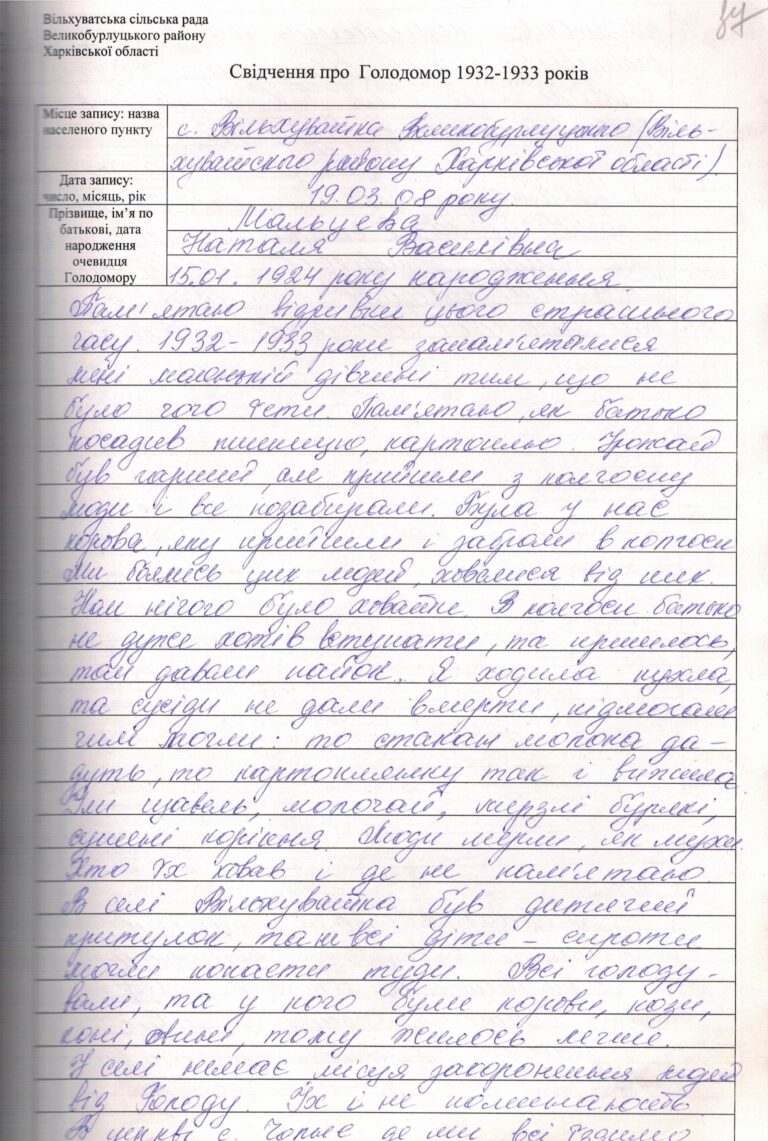 34
Вільхуватська сільська рада
Великобурлуцького району
Харківської області
Свідчення про Голодомор 1932-1933 років
Місце запису: назва
населеного пункту
с. Вільхуватка Великобурлуцького (Віль-
хуватского району Харківської області).
Дата запису:
число, місяць, рік
19.03.08 року.
Прізвище, ім’я по
батькові, дата
народження
очевидця
Голодомору
Мальцева
Наталя Василівна
15.01.1924 року народження.
Пам'ятаю відривки цього страшного
часу. 1932-1933 роки запам'яталися
мені маленькій дівчині тим, що не
було чого їсти. Пам'ятаю, як батько
посадив пшеницю, картоплю. Урожай
був гарний, але прийшли з колгоспу
люди і все позабирали. Була у нас
корова, яку прийшли і забрали в колгосп
Ми боялись цих людей, ховалися від них.
Нам нічого було ховати. В колгосп батько
не дуже хотів вступати, та прийшлось,
там давали пайок. Я ходила пухла,
та сусіди не дали вмерти, підмогали
чим могли: то стакан молока да-
дуть, то картоплинку так і вижила
Їли щавель, молочай, мерзлі буряки,
сушені коріння. Люди мерли, як мухи.
Хто їх ховав і де не пам'ятаю.
В селі Вільхуватка був дитячий
притулок, та не всі діти - сироти
могли попасти туди. Всі голоду-
вали, та у кого були корови, кози,
коні, свині, тому жилось легше.
У селі немає місця захоронення людей
від Голоду. Їх і не поминають
В церкві с. де ми всі